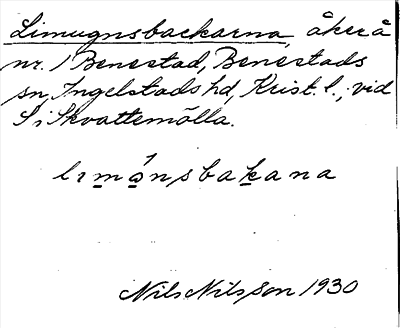 Limugnsbackarna, åker å
nr. 1 Benestad, Benestads
sn, Ingelstads hd, Krist. l., vid
Skvattemölla.
Nils Nilsson 1930